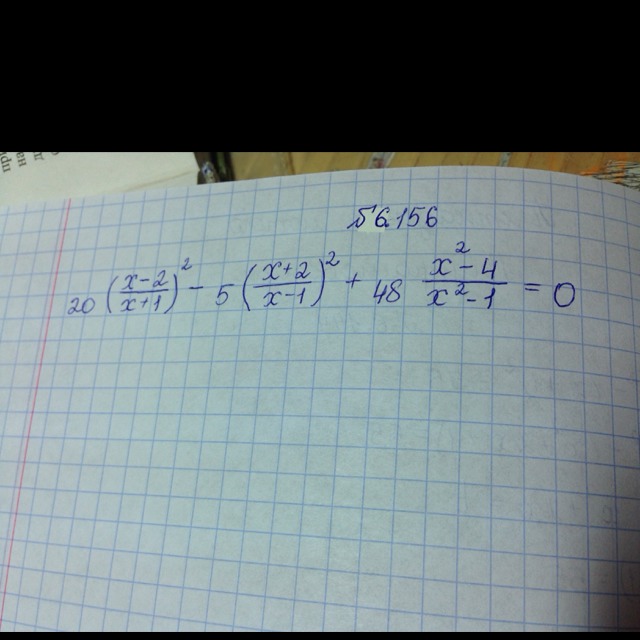 №6.156
20 (x-2/x+1)² - 5 (x+2/x-1)² + 48 x²-4/x²-1 = 0